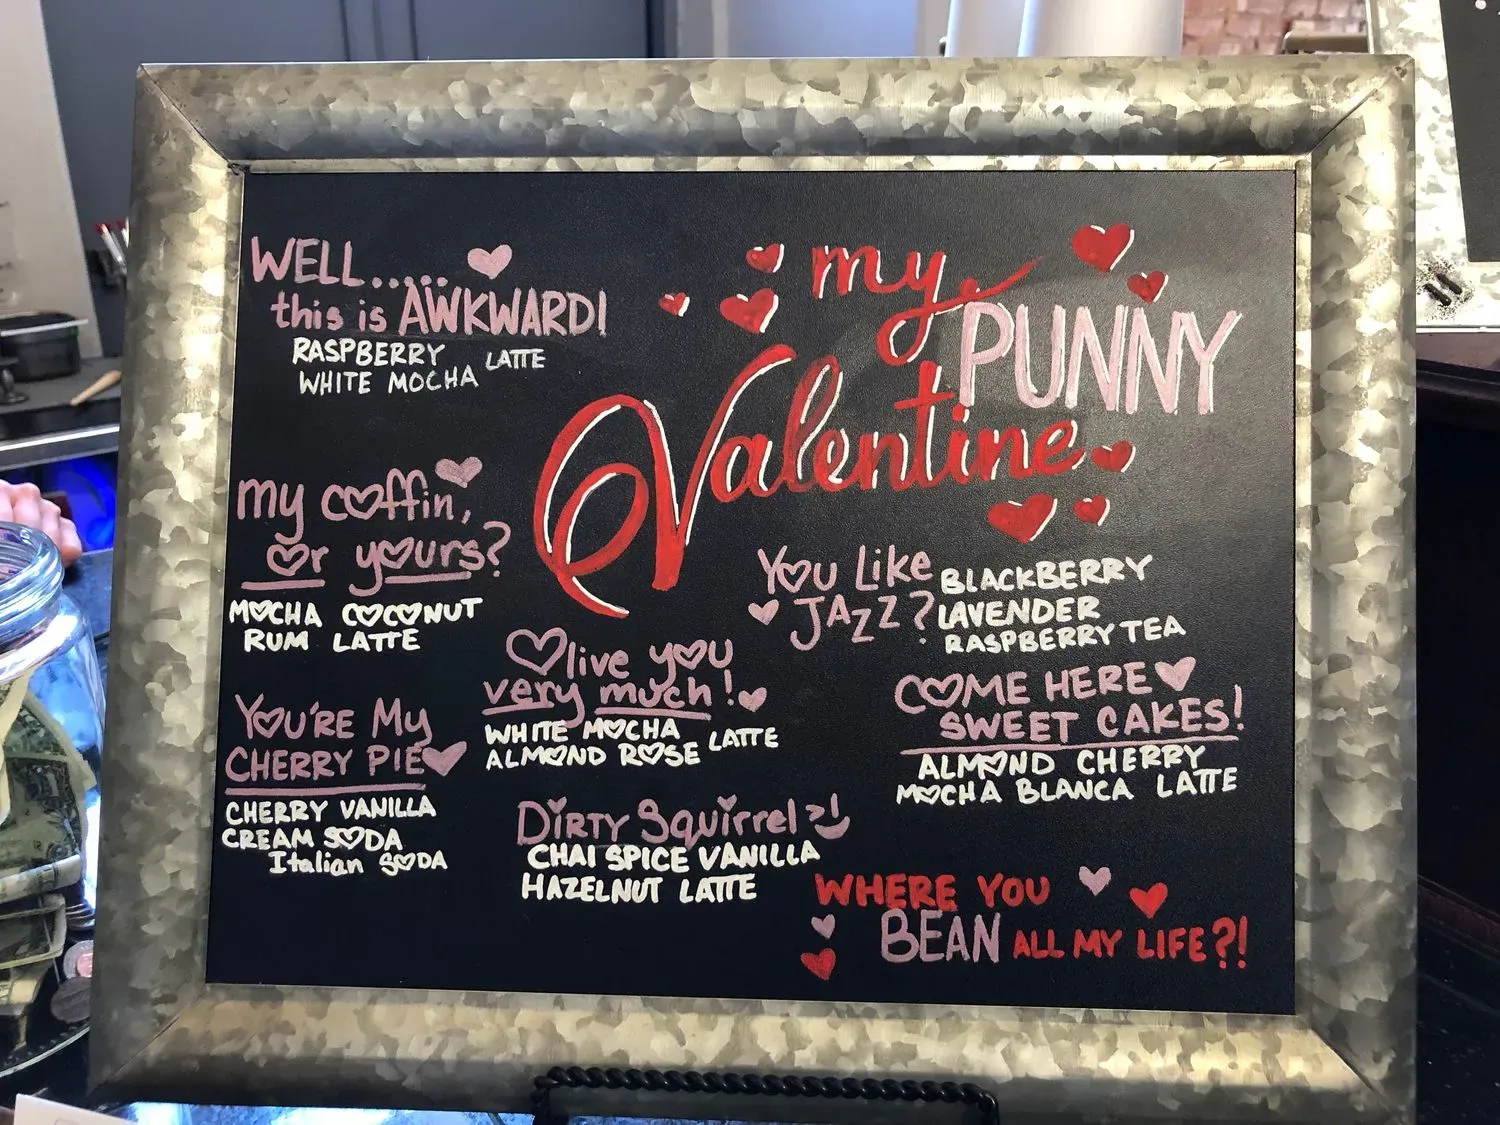 my
PUNNY
Valentine
WELL......
this is AWKWARD!
RASPBERRY
WHITE MOCHA LATTE
my coffin,
or yours?
MOCHA COCONUT
RUM LATTE
YOU'RE My
CHERRY PIE
CHERRY VANILLA
CREAM SODA
Italian SODA
Olive you
very much!
WHITE MOCHA
ALMOND ROSE LATTE
DIRTY Squirrel
CHAI SPICE VANILLA
HAZELNUT LATTE
You Like
JAZZ?
BLACKBERRY
LAVENDER
RASPBERRY TEA
COME HERE
SWEET CAKES!
ALMOND CHERRY
MOCHA BLANCA LATTE
WHERE YOU
BEAN ALL MY LIFE?!